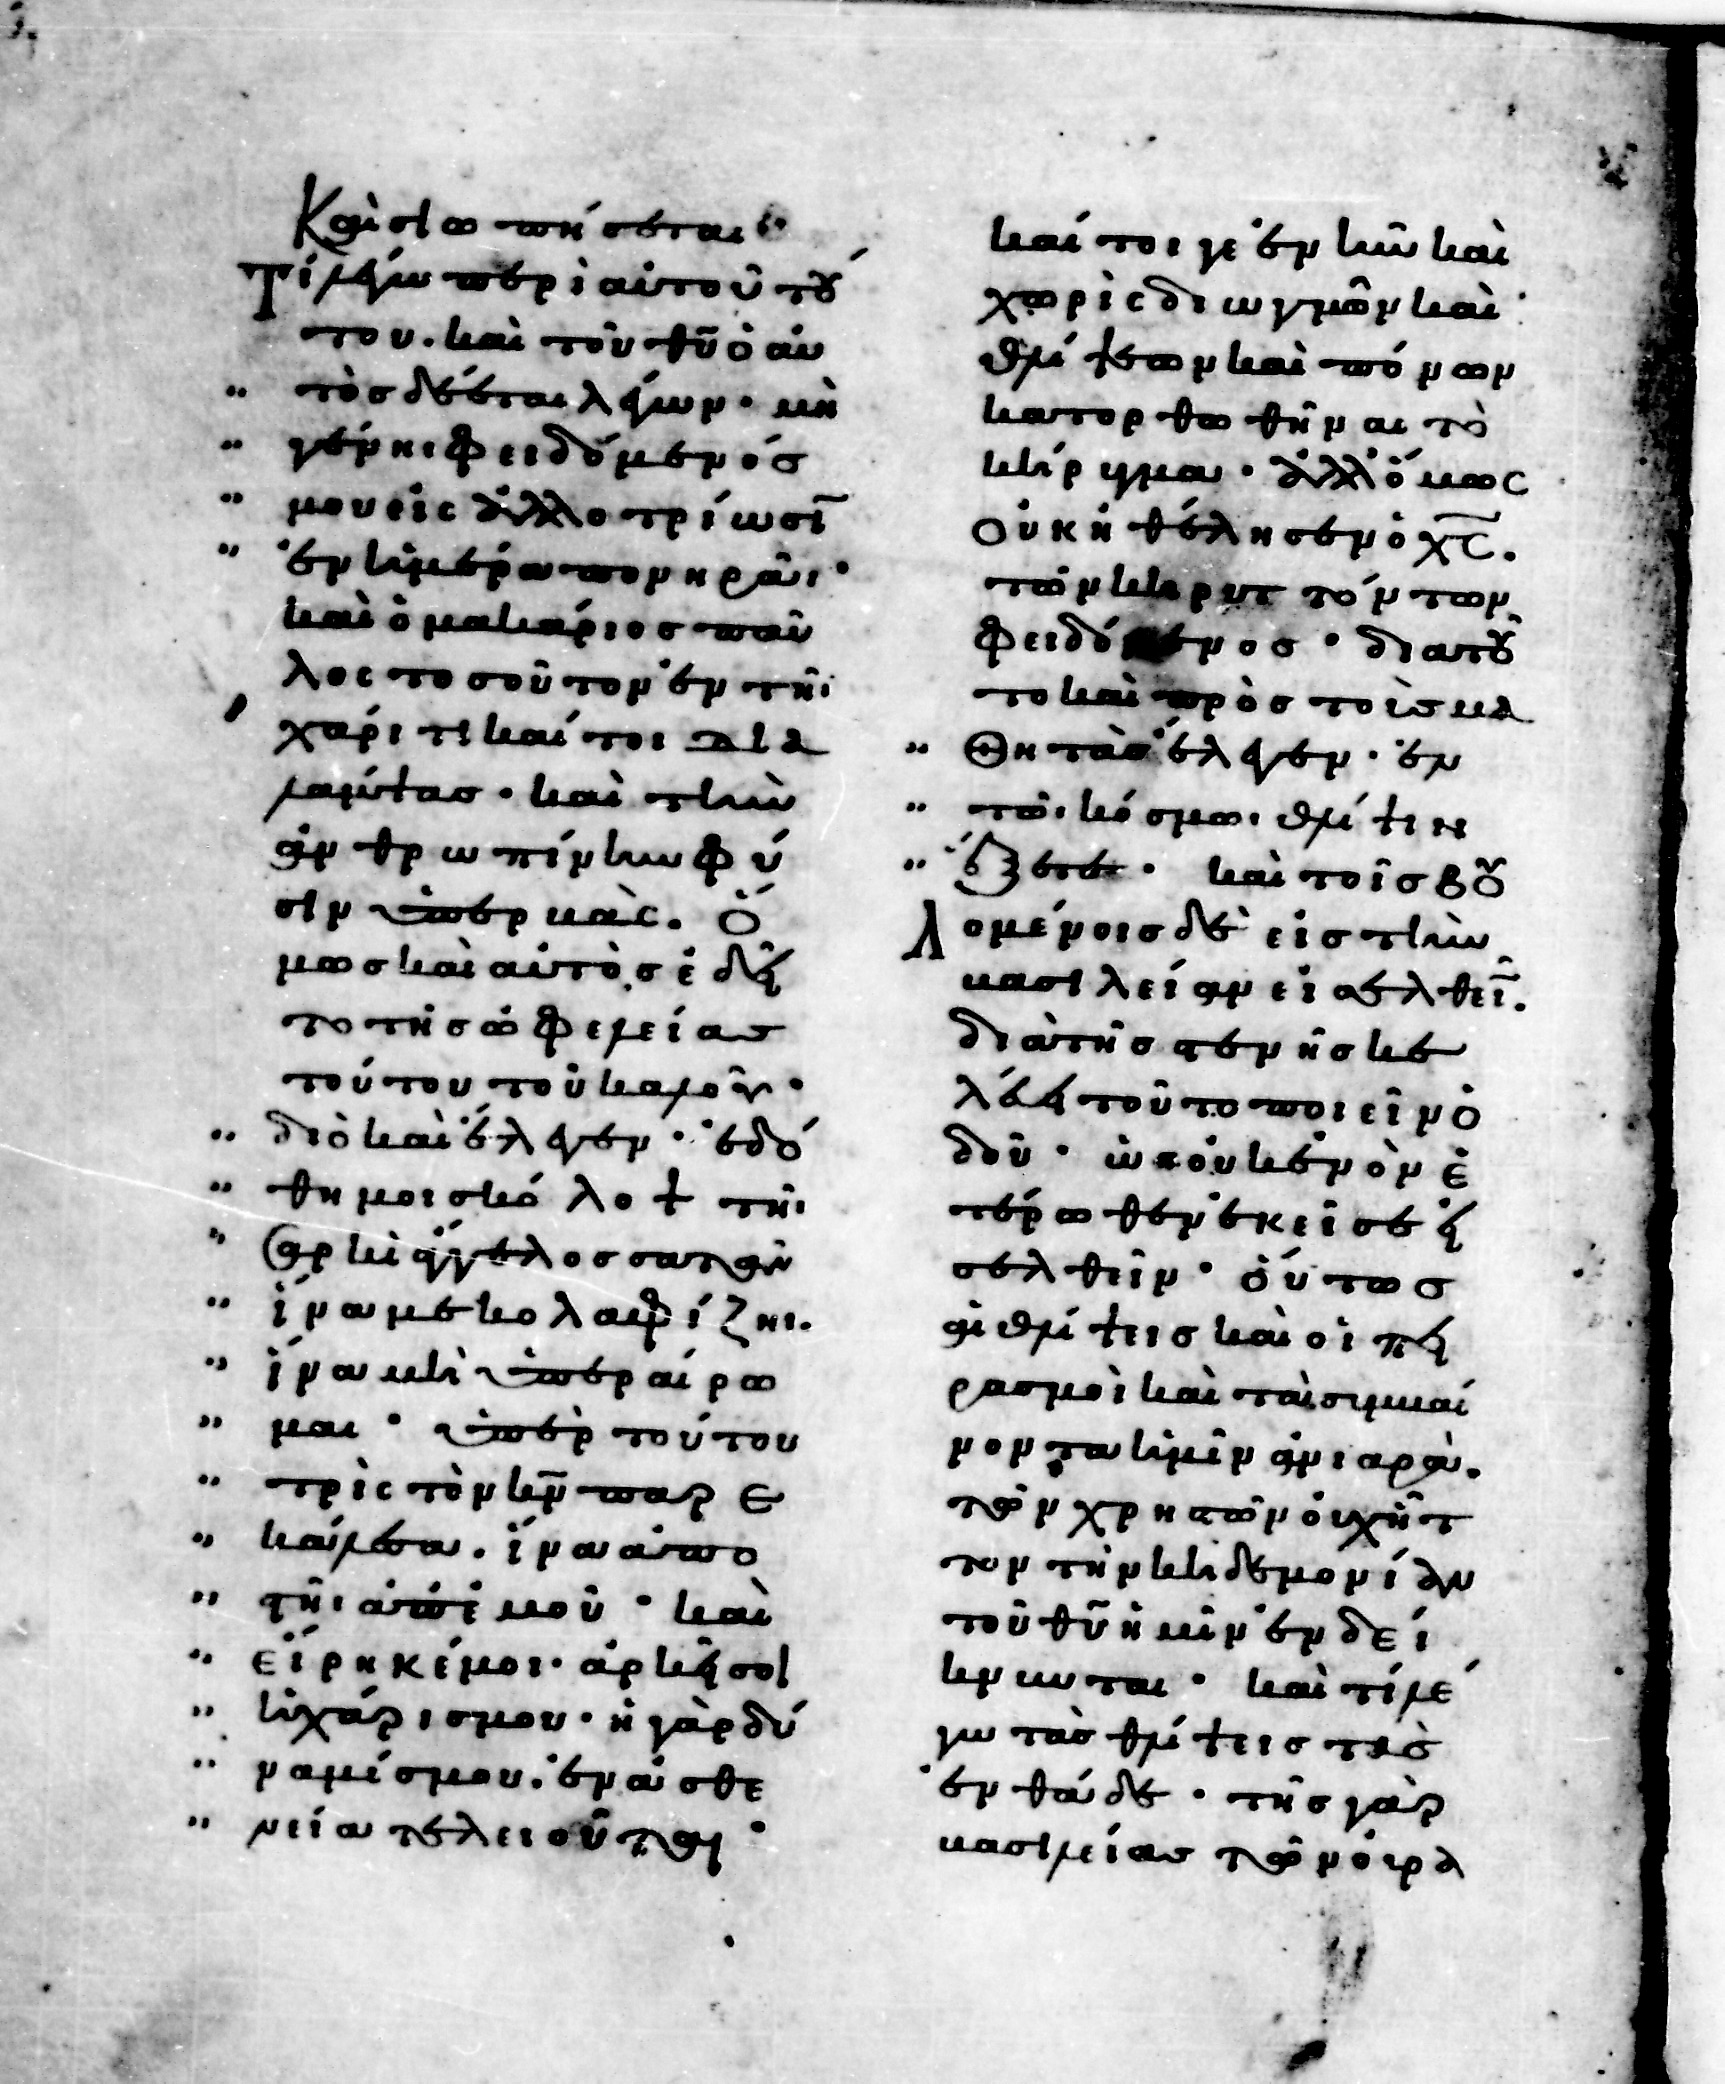 Καὶ σιωπήσεται·
Τί λέγω περὶ αὐτοῦ τού
του. καὶ τοῦ θῦ ὁ αὐ
τὸς δέεται λέγων· μὴ
γένηι φειδόμενός
μου εἰς ἀλλοτρίωσῑ
ἐν ἡμέρα πονηρᾶι·
καὶ ὁ μακάριος παῦ
λος τοσοῦτον ἐν τῆι
χάριτι καίτοι δια
λάμψας· καὶ τὴν
ἀνθρωπίνην φύ
σιν ὑπερβὰς. ὅ
μως καὶ αὐτὸς ἐδεῖ
το τῆς ὠφελείας
τούτου τοῦ καλοῦ·
διὸ καὶ ἔλεγεν· ἐδό
θη μοι σκόλοψ τῆι
σαρκὶ ἄγγελος σαταν
ἵνα με κολαφίζηι.
ἵνα μὴ ὑπεραίρω
μαι· ὑπὲρ τούτου
τρὶς τὸν κν̄ παρε
κάλεσα. ἵνα ἀπο
στῆι ἀπ' ἐμοῦ· καὶ
εἴρηκέ μοι· ἀρκεῖ σοι
ἡ χάρις μου· ἡ γὰρ δύ
ναμίς μου. ἐν ἀσθε
νεία τελειοῦται·
καίτοιγε ἐνῆν καὶ
χωρὶς διωγμῶν καὶ
θλίψεων καὶ πόνων
κατορθωθῆναι τὸ
κήρυγμα· ἀλλ' ὅμως
οὐκ ἠθέλησεν ὁ χς̄.
τῶν κηρυττόντων
φειδόμενος· διὰ τοῦ
το καὶ πρὸς τοὺς μα
θητὰς ἔλεγεν· ἐν
τῶι κόσμωι θλίψιν
ἕξετε· καὶ τοῖς βου
λομένοις δὲ εἰς τὴν
βασιλείαν εἰσελθεῖ.
διὰ τῆς στενῆς κε
λεύει τοῦτο ποιεῖν ὁ
δοῦ· ὡς οὐκ ἐνὸν ἑ
τέρωθεν ἐκεῖσε εἰ
σελθεῖν· οὕτως
αἱ θλίψεις καὶ οἱ πει
ρασμοὶ καὶ τὰ συμβαί
νοντα ἡμῖν ἀνιαρὰ.
τῶν χρηστῶν οὐχ ἧτ
τον τὴν κηδεμονίαν
τοῦ θῦ ἡμῖν ἐνδεί
κνυται· καὶ τί λέ
γω τὰς θλίψεις τὰς
ἐνθάδε· τῆς γὰρ
βασιλείας τῶν οὐρα